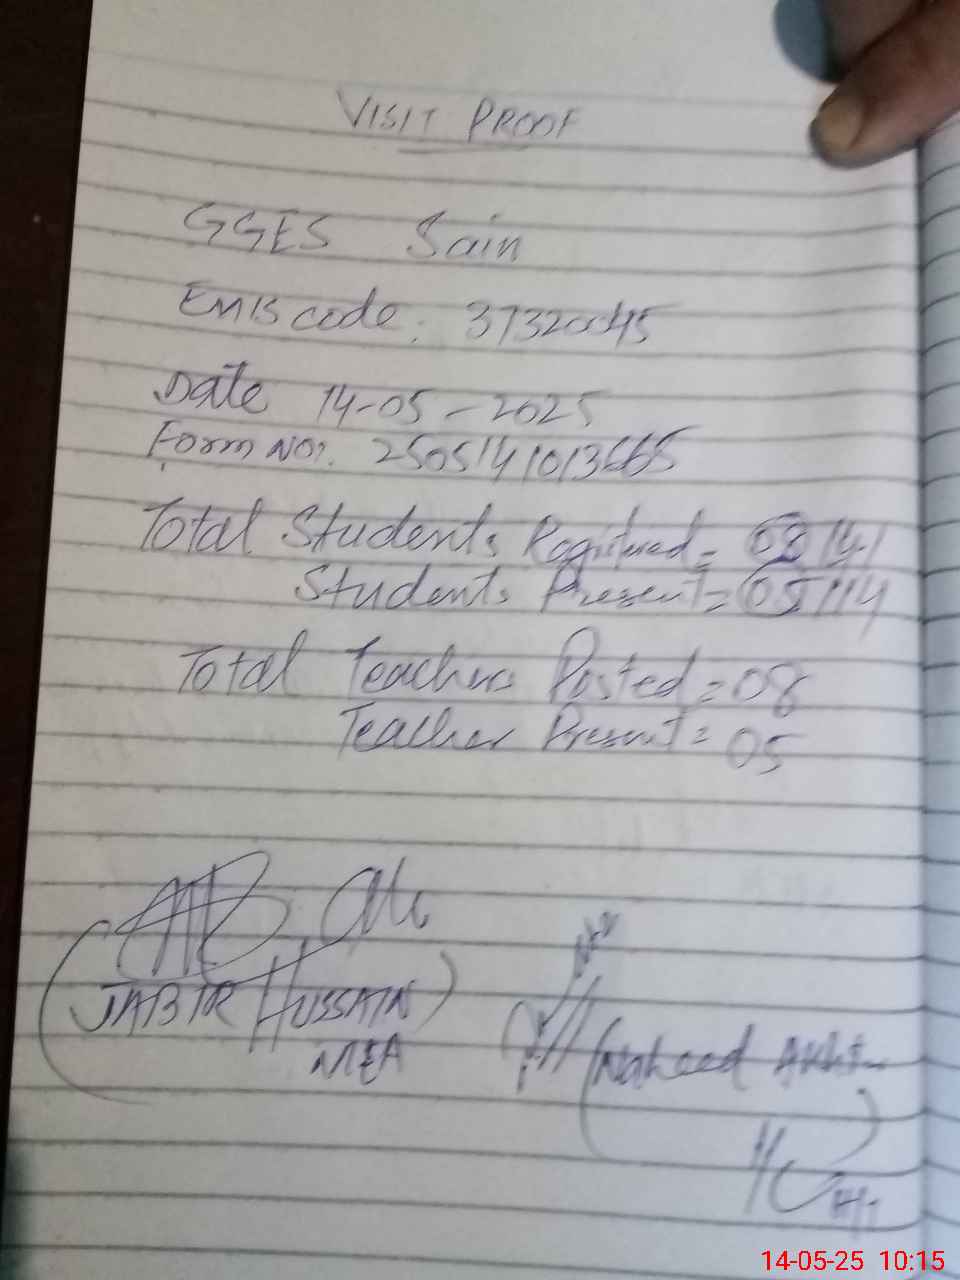 VISIT PROOF
GGES Sain
EMIS code: 37320045
Date 14-05-2025
Form No: 2505141013665
Total Students Registered = 08 141
Students Present = 05 114
Total Teachers Posted = 08
Teacher Present = 05
JABIR HUSSAIN
MEA
Naheed Akhtar
14-05-25 10:15